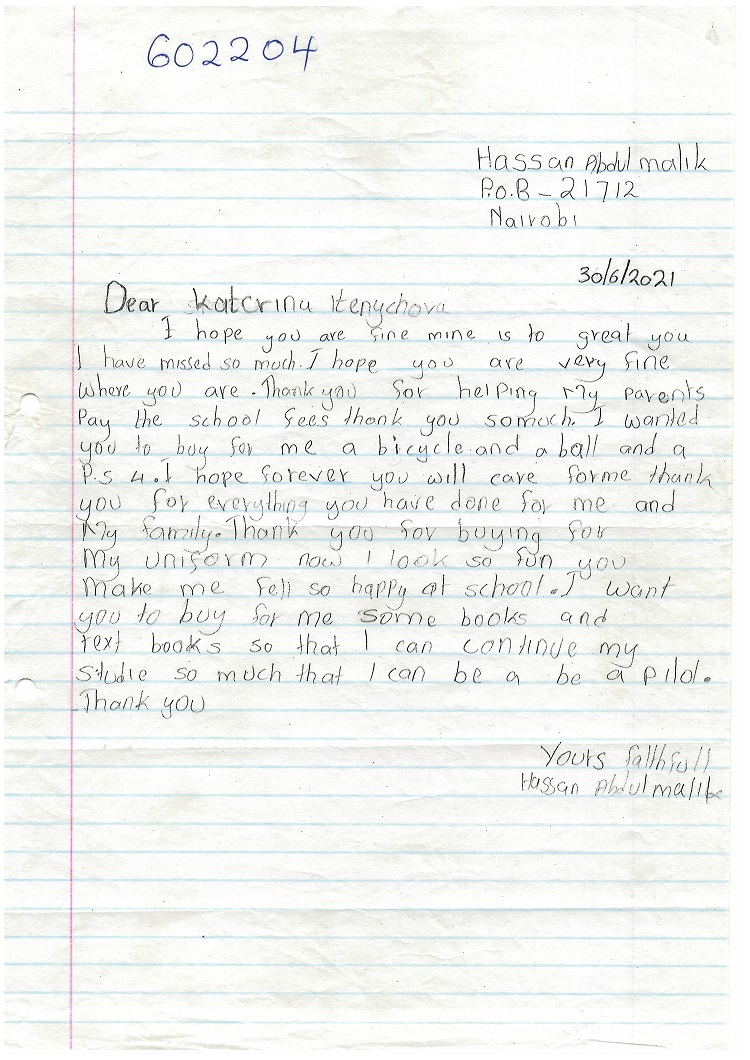 602204
Hassan Abdul malik
P.O.B - 21712
Nairobi
30/6/2021
Dear Katerina
I hope you are fine mine is to great you
I have missed so much. I hope you are very fine
where you are. Thank you for helping my parents
Pay the school fees thank you somuch. I wanted
you to buy for me a bicycle.and a ball and a
P.s 4. I hope forever you will care forme thank
you for everything you have done for me and
My family. Thank you for buying for
my uniform now I look so fun you
make me fell so happy at school. I want
you to buy for me some books and
text books so that I can continue my
studie so much that I can be a be a pilot.
Thank you
Yours faithfull
Hassan Abdul malik